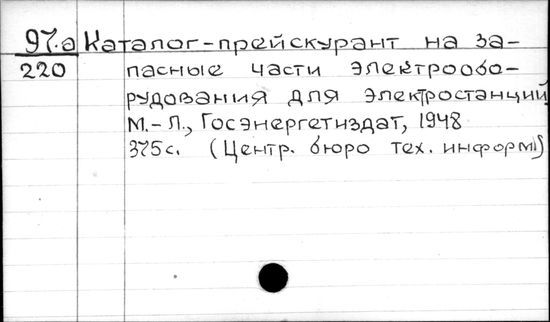 97.а Каталог-прейскурант на за-
220 пасные части электрообо-
рудования для электростанций
М.-Л., Госэнергетиздат, 1948
375с. (Центр. бюро тех. информ)